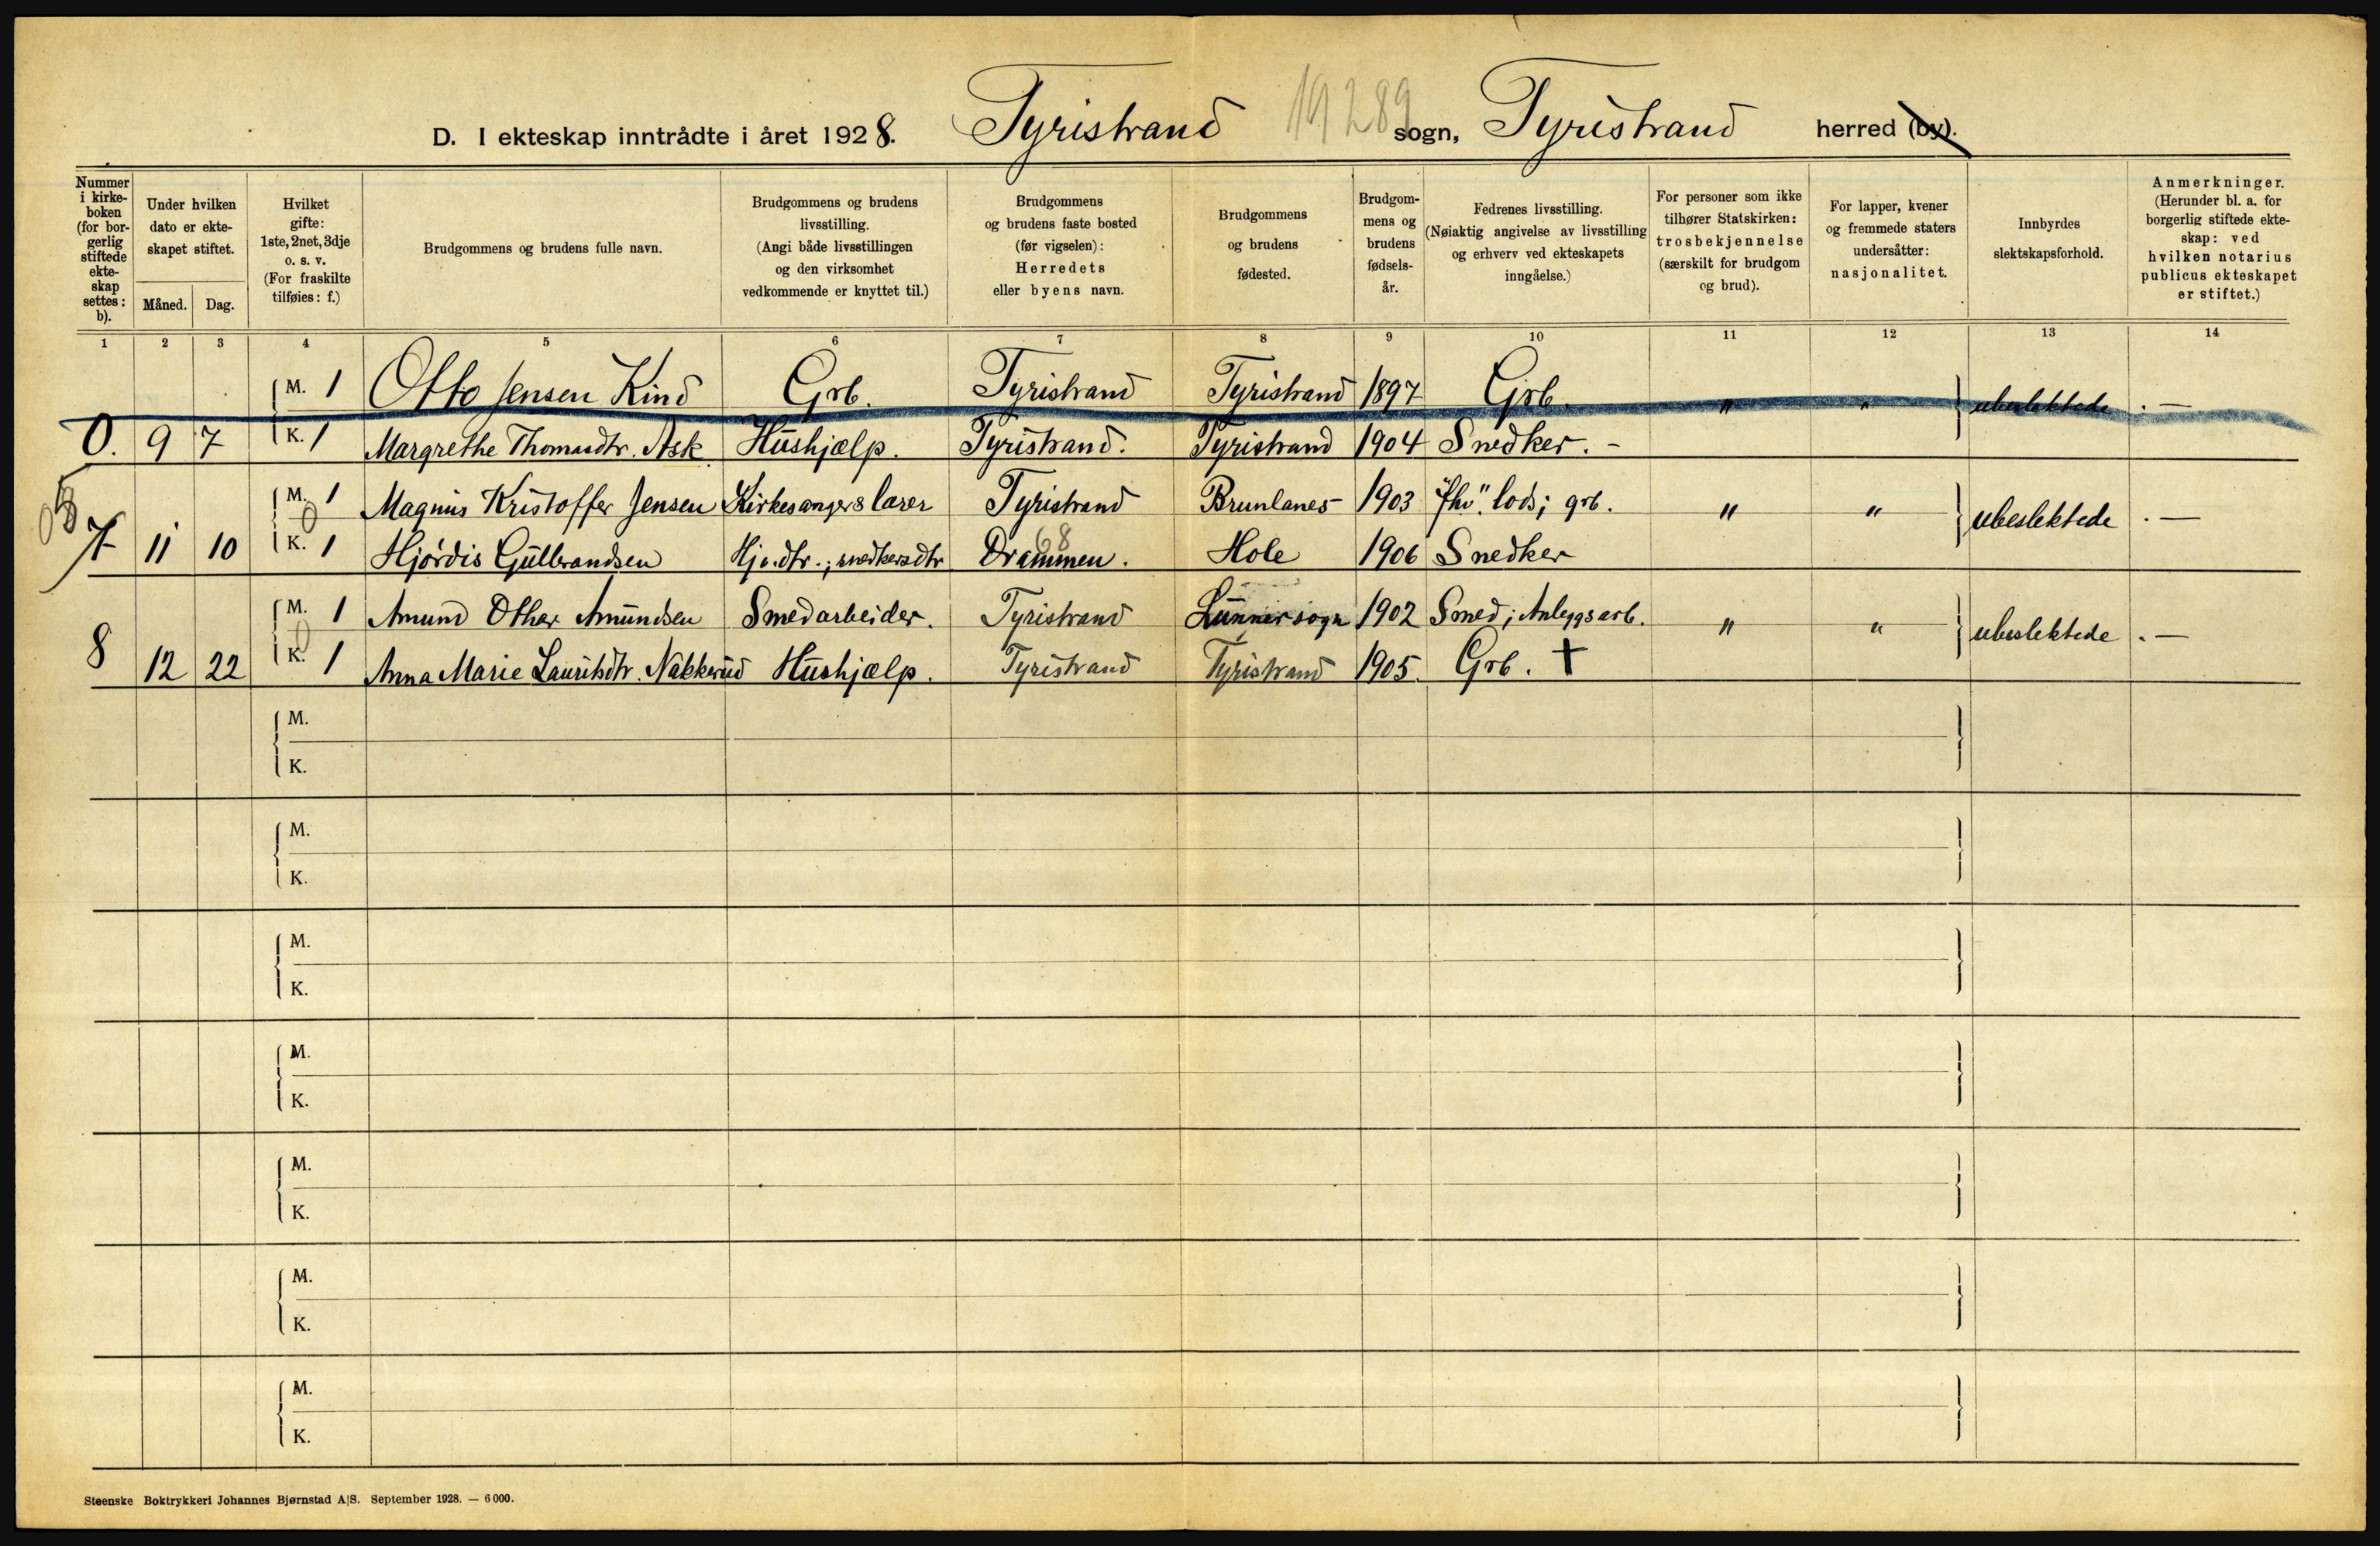 D. I ekteskap inntrådte i året 1928. Tyristrand sogn, Tyristrand herred (by).
Nummer i kirkeboken (for borgerlig stiftede ekteskap settes: b).
Under hvilken dato er ekteskapet stiftet.
Måned. Dag.
Hvilket gifte: 1ste, 2net, 3dje o. s. v. (For fraskilte tilføies: f.)
Brudgommens og brudens fulle navn.
Brudgommens og brudens livsstilling. (Angi både livsstillingen og den virksomhet vedkommende er knyttet til.)
Brudgommens og brudens faste bosted (før vigselen): Herredets eller byens navn.
Brudgommens og brudens fødested.
Brudgommens og brudens fødselsår.
Fedrenes livsstilling. (Nøiaktig angivelse av livsstilling og erhverv ved ekteskapets inngåelse.)
For personer som ikke tilhører Statskirken: trosbekjennelse (særskilt for brudgom og brud).
For lapper, kvener og fremmede staters undersåtter: nasjonalitet.
Innbyrdes slektskapsforhold.
Anmerkninger. (Herunder bl. a. for borgerlig stiftede ekteskap: ved hvilken notarius publicus ekteskapet er stiftet.)
1 2 3 4 5 6 7 8 9 10 11 12 13 14
M. 1 Otto Jensen Kind Grb. Tyristrand Tyristrand 1897 Grb. " " ubeslektede . —
0. 9 7 K. 1 Margrethe Thomasdtr. Ask Hushjælp. Tyristrand. Tyristrand 1904 Snedker. -
M. 1 Magnus Kristoffer Jensen Kirkesanger & lærer Tyristrand Brunlanes 1903 "fhv". lods; grb. " " ubeslektede . —
7 11 10 K. 1 Hjørdis Gulbrandsen Hjv. dtr.; snedkersdtr Drammen. 68 Hole 1906 Snedker
M. 1 Amund Othar Amundsen Smedarbeider. Tyristrand Lunner sogn 1902 Smed; Anleggsarb. " " ubeslektede . —
8 12 22 K. 1 Anna Marie Lauritsdtr. Nakkerud Hushjælp. Tyristrand Tyristrand 1905. Grb. +
M.
K.
M.
K.
M.
K.
M.
K.
M.
K.
M.
K.
M.
K.
Steenske Boktrykkeri Johannes Bjørnstad A|S. September 1928. — 6000.